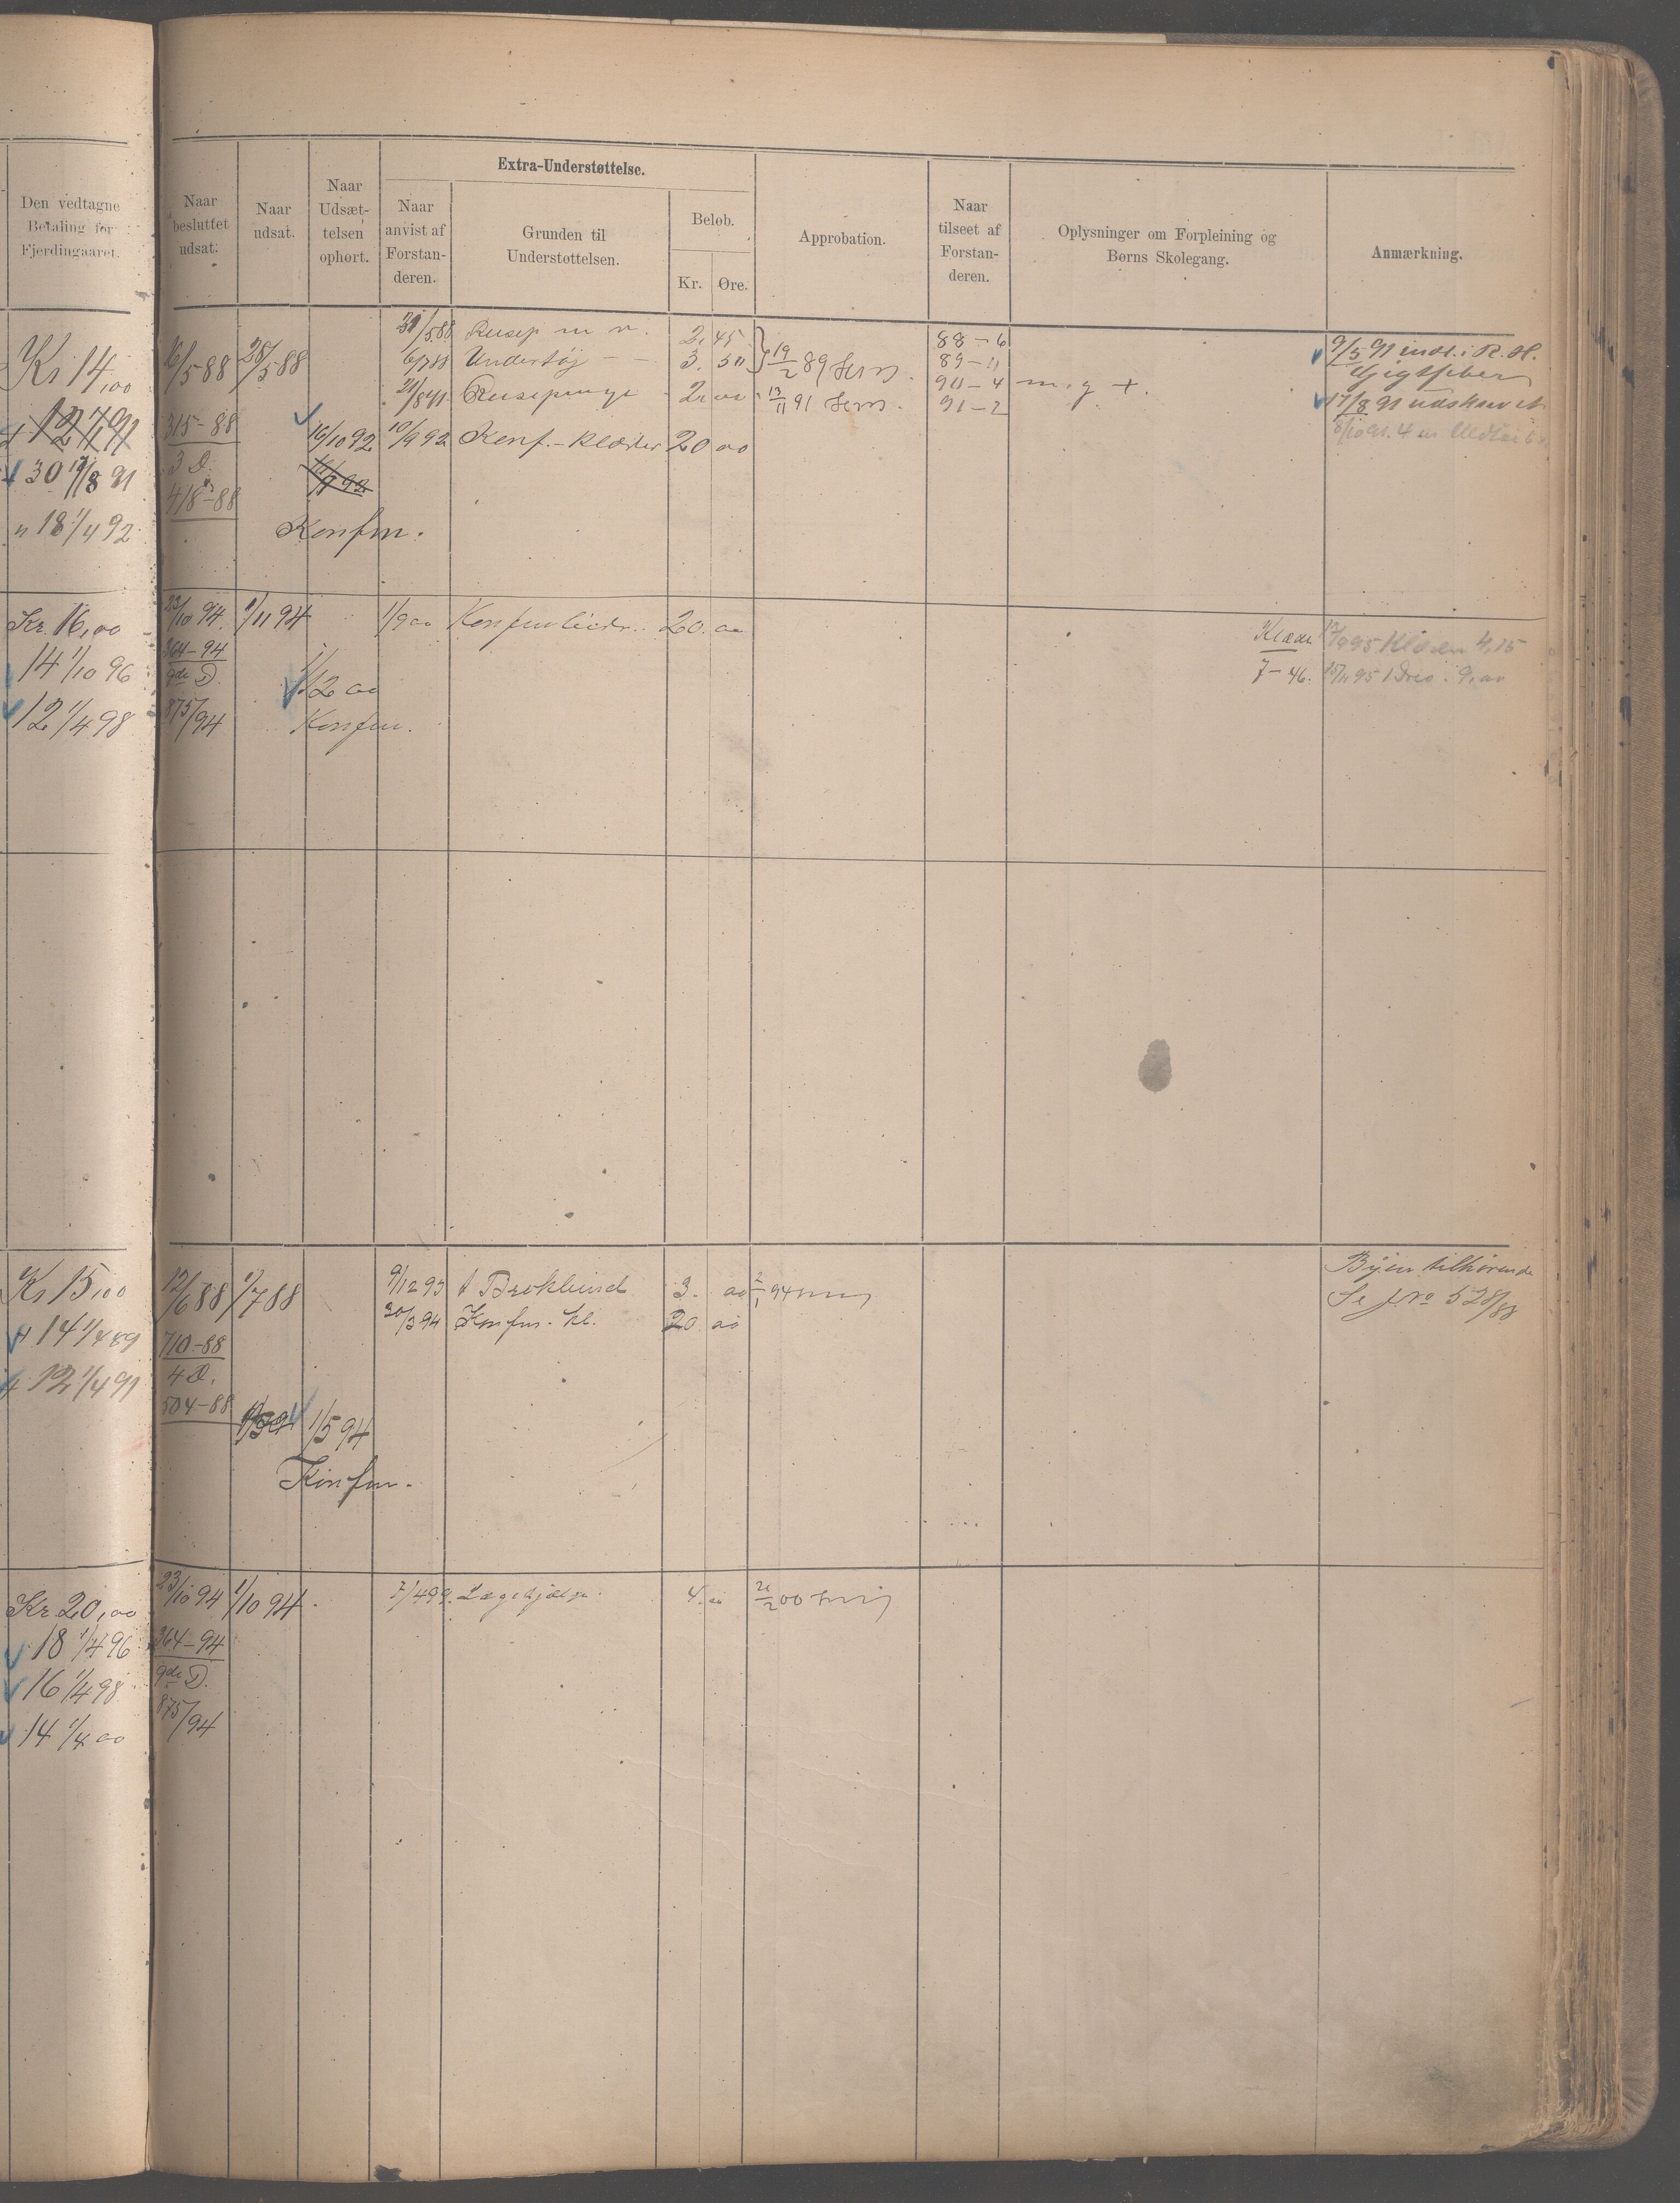 Den vedtagne
Betaling for
Fjerdingaaret.
Naar
besluttet
udsat.
Naar
udsat.
Naar
Udsæt-
telsen
ophort.
Extra-Understøttelse.
Naar
anvist af
Forstan-
deren.
Grunden til
Understøttelsen.
Beløb.
Kr.
Øre.
Approbation.
Naar
tilseet af
Forstan-
deren.
Oplysninger om Forpleining og
Børns Skolegang.
Anmærkning.
Kr 14,00
30 17/8 91
" 18 1/4 92
16/5 88
28/5 88
315-88
3 D.
418-88
16/10 92
Konfm.
31/5 88
2. 45
6/7 88 Undertøj - - 3. 50
19/2 89
21/8 91 Reisepenge 2. 00
13/11 91
10/9 92 Konf.-Klæder 20 00
88-6
89-11
90-4 m. g +.
91-2
9/5 91 indl. i R. H.
Gigtfeber
17/8 91 udskrevet
Kr. 16,00
14 1/10 96
12 1/4 98
23/10 94
1/11 94
364-94
9de D.
875/94
Konfm.
1/9 00
20. 00
Klæder
7-46.
4,15
9,00
Kr 15,00
14 1/4 89
12 1/4 91
12/6 88
1/7 88
710-88
4 D.
504-88
1/5 94
Konfm.
9/12 93 1 Brokbind 3. 00
2/1 94
20/3 94 Konfm. Kl. 20 00
Byen tilhørende
Se J. No 528/88
Kr 20,00
18 1/4 96
16 1/4 98
14 1/4 00
23/10 94
1/10 94
364-94
9de D.
875/94
7/4 99. Lægehjælp. 4. 00